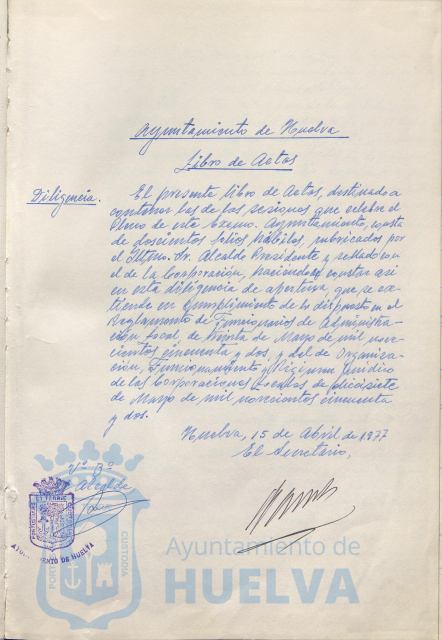 Ayuntamiento de Huelva
Libro de Actas
Diligencia.
El presente libro de Actas, destinado a
contener las de las sesiones que celebre el
Pleno de este Excmo. Ayuntamiento, consta
de doscientos folios hábiles, rubricados por
el Iltmo. Sr. Alcalde Presidente y sellado con
el de la Corporación, haciéndose constar así
en esta diligencia de apertura, que se ex-
tiende en cumplimiento de lo dispuesto en el
Reglamento de Funcionarios de Administra-
ción Local, de treinta de Mayo de mil nove-
cientos cincuenta y dos, y del de Organiza-
ción, Funcionamiento y Régimen Jurídico
de las Corporaciones Locales de diecisiete
de Mayo de mil novecientos cincuenta
y dos.
Huelva, 15 de Abril de 1977
El Secretario,
Vº Bº
Alcalde
AYUNTAMIENTO DE HUELVA
Ayuntamiento de
HUELVA
PORT
CUSTODIA